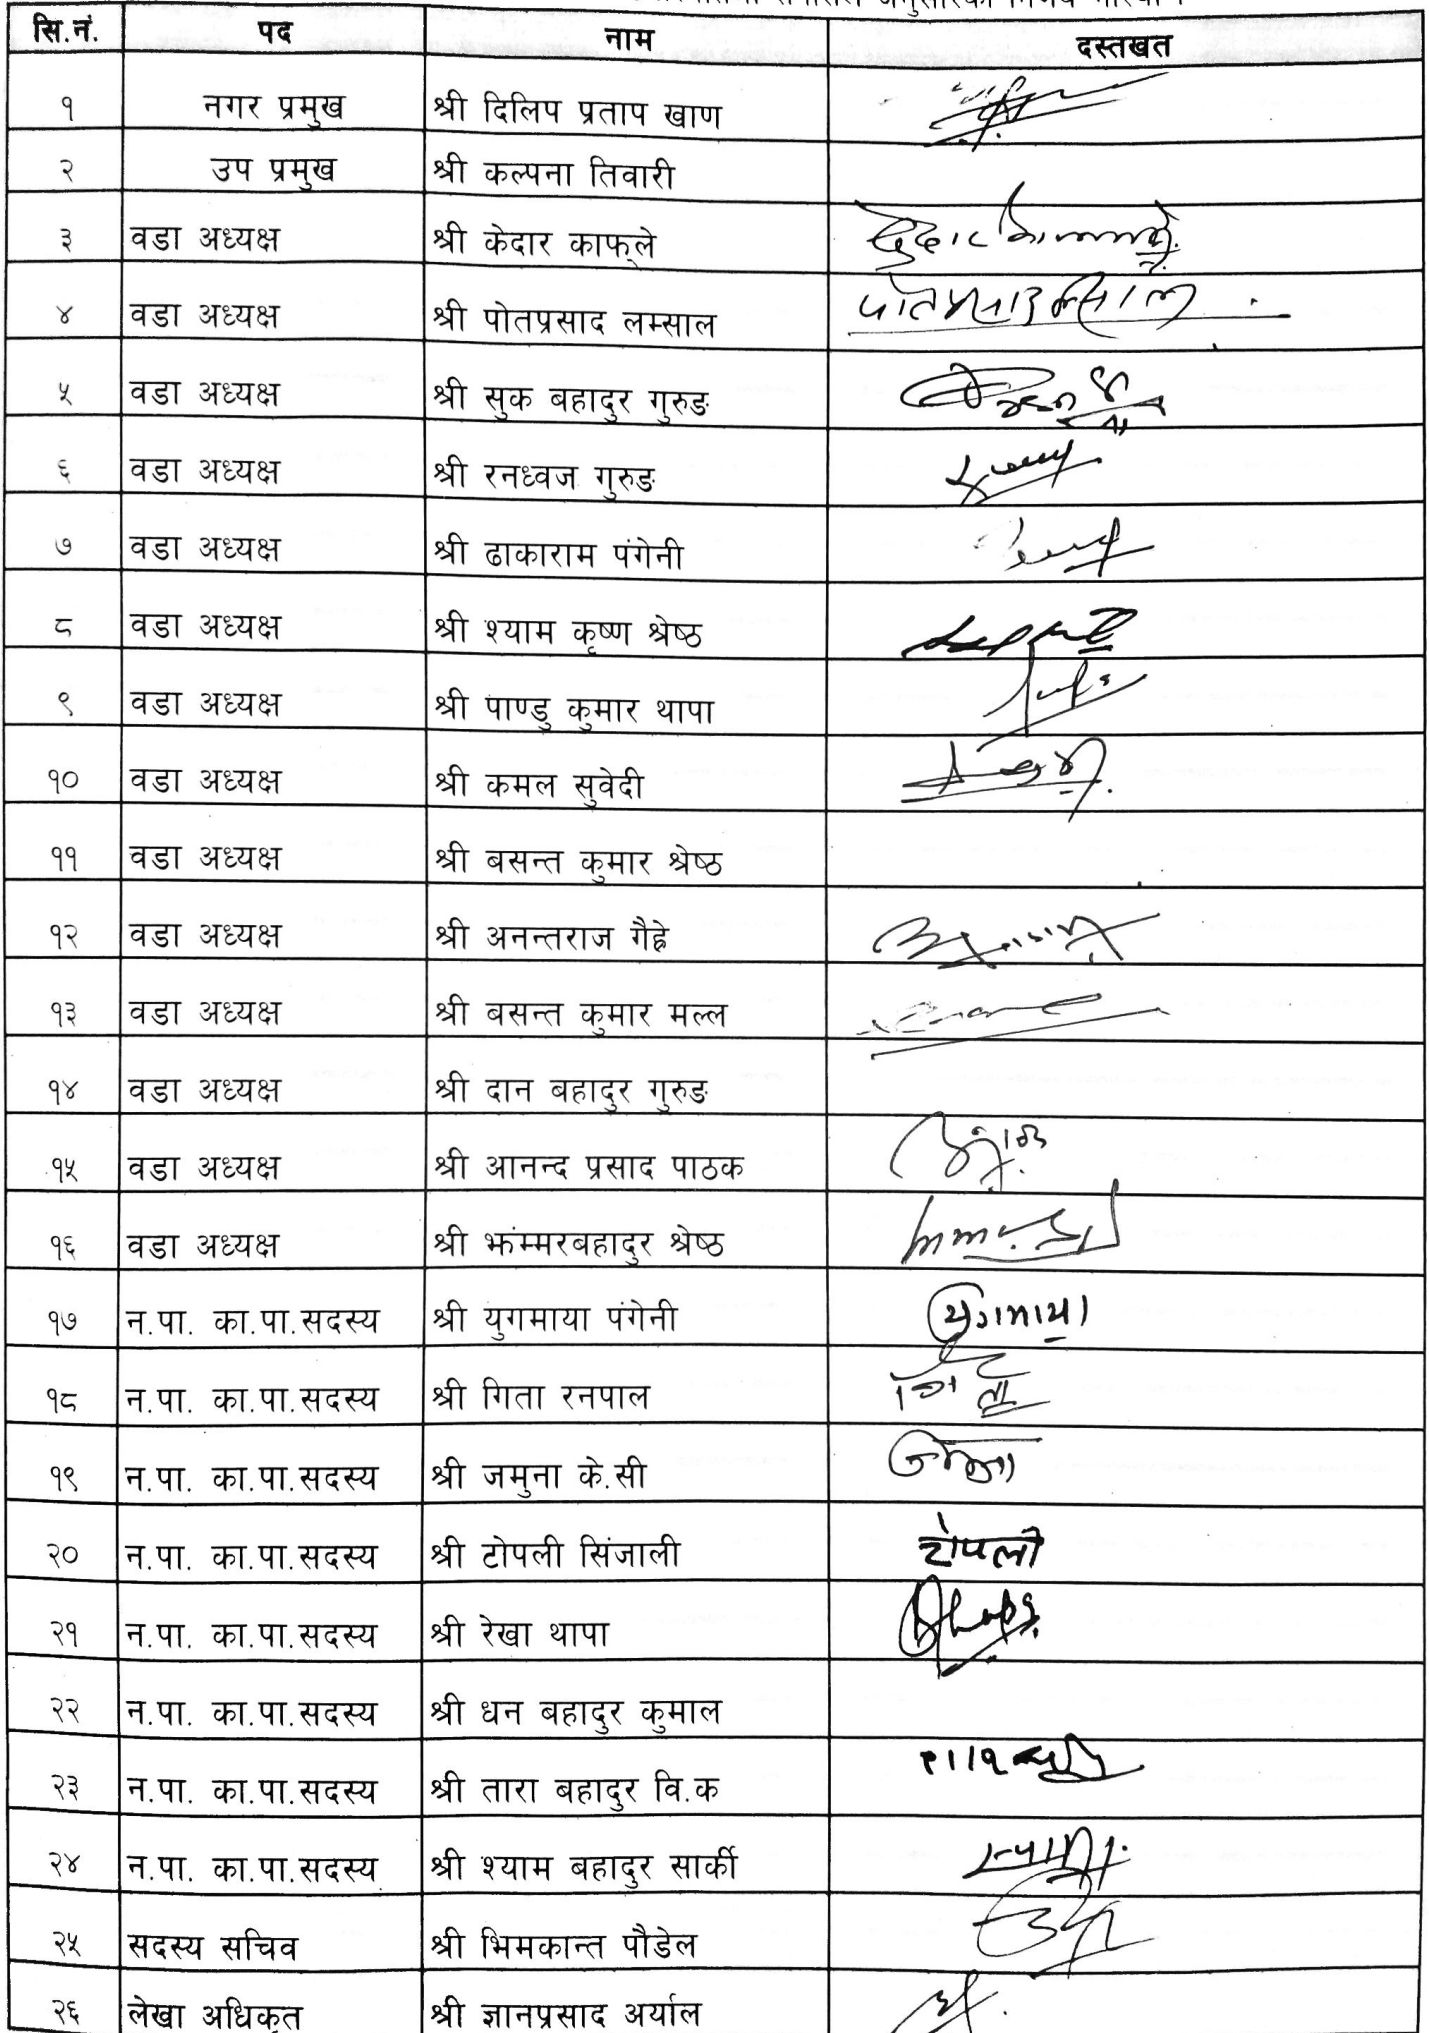 सि.नं. पद नाम दस्तखत
१ नगर प्रमुख श्री दिलिप प्रताप खाण
२ उप प्रमुख श्री कल्पना तिवारी
३ वडा अध्यक्ष श्री केदार काफ्ले
४ वडा अध्यक्ष श्री पोतप्रसाद लम्साल पोतप्रसाद लम्साल
५ वडा अध्यक्ष श्री सुक बहादुर गुरुङ
६ वडा अध्यक्ष श्री रनध्वज गुरुङ
७ वडा अध्यक्ष श्री ढाकाराम पंगेनी
८ वडा अध्यक्ष श्री श्याम कृष्ण श्रेष्ठ
९ वडा अध्यक्ष श्री पाण्डु कुमार थापा
१० वडा अध्यक्ष श्री कमल सुवेदी
११ वडा अध्यक्ष श्री बसन्त कुमार श्रेष्ठ
१२ वडा अध्यक्ष श्री अनन्तराज गैह्रे
१३ वडा अध्यक्ष श्री बसन्त कुमार मल्ल
१४ वडा अध्यक्ष श्री दान बहादुर गुरुङ
१५ वडा अध्यक्ष श्री आनन्द प्रसाद पाठक
१६ वडा अध्यक्ष श्री झंम्मरबहादुर श्रेष्ठ
१७ न.पा. का.पा.सदस्य श्री युगमाया पंगेनी युगमाया
१८ न.पा. का.पा.सदस्य श्री गिता रनपाल गिता
१९ न.पा. का.पा.सदस्य श्री जमुना के.सी
२० न.पा. का.पा.सदस्य श्री टोपली सिंजाली टोपली
२१ न.पा. का.पा.सदस्य श्री रेखा थापा
२२ न.पा. का.पा.सदस्य श्री धन बहादुर कुमाल
२३ न.पा. का.पा.सदस्य श्री तारा बहादुर वि.क
२४ न.पा. का.पा.सदस्य श्री श्याम बहादुर सार्की
२५ सदस्य सचिव श्री भिमकान्त पौडेल
२६ लेखा अधिकृत श्री ज्ञानप्रसाद अर्याल